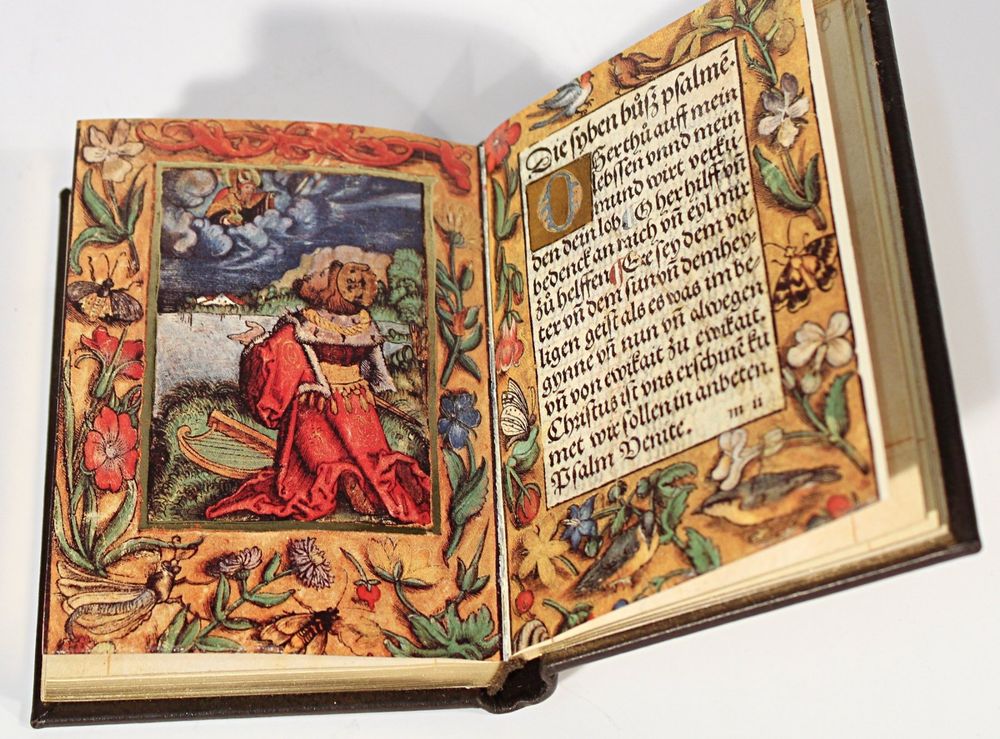 Die syben bůſz pſalmē.
O Her thů auff mein
lebſſen vnnd mein
mund wirt verkü
den dein lob. O her hilff vñ
bedenck an rach vñ eyl mir
zů helffen Er ſey dem va-
ter vñ dem ſun vñ dem hey-
ligen geiſt als es was im be-
gynne vñ nun vñ alwegen
vñ von ewikait zů ewikait.
Chriſtus iſt vns erſchinē kū
met wir ſollen in anbeten.
Pſalm Venite. m ii